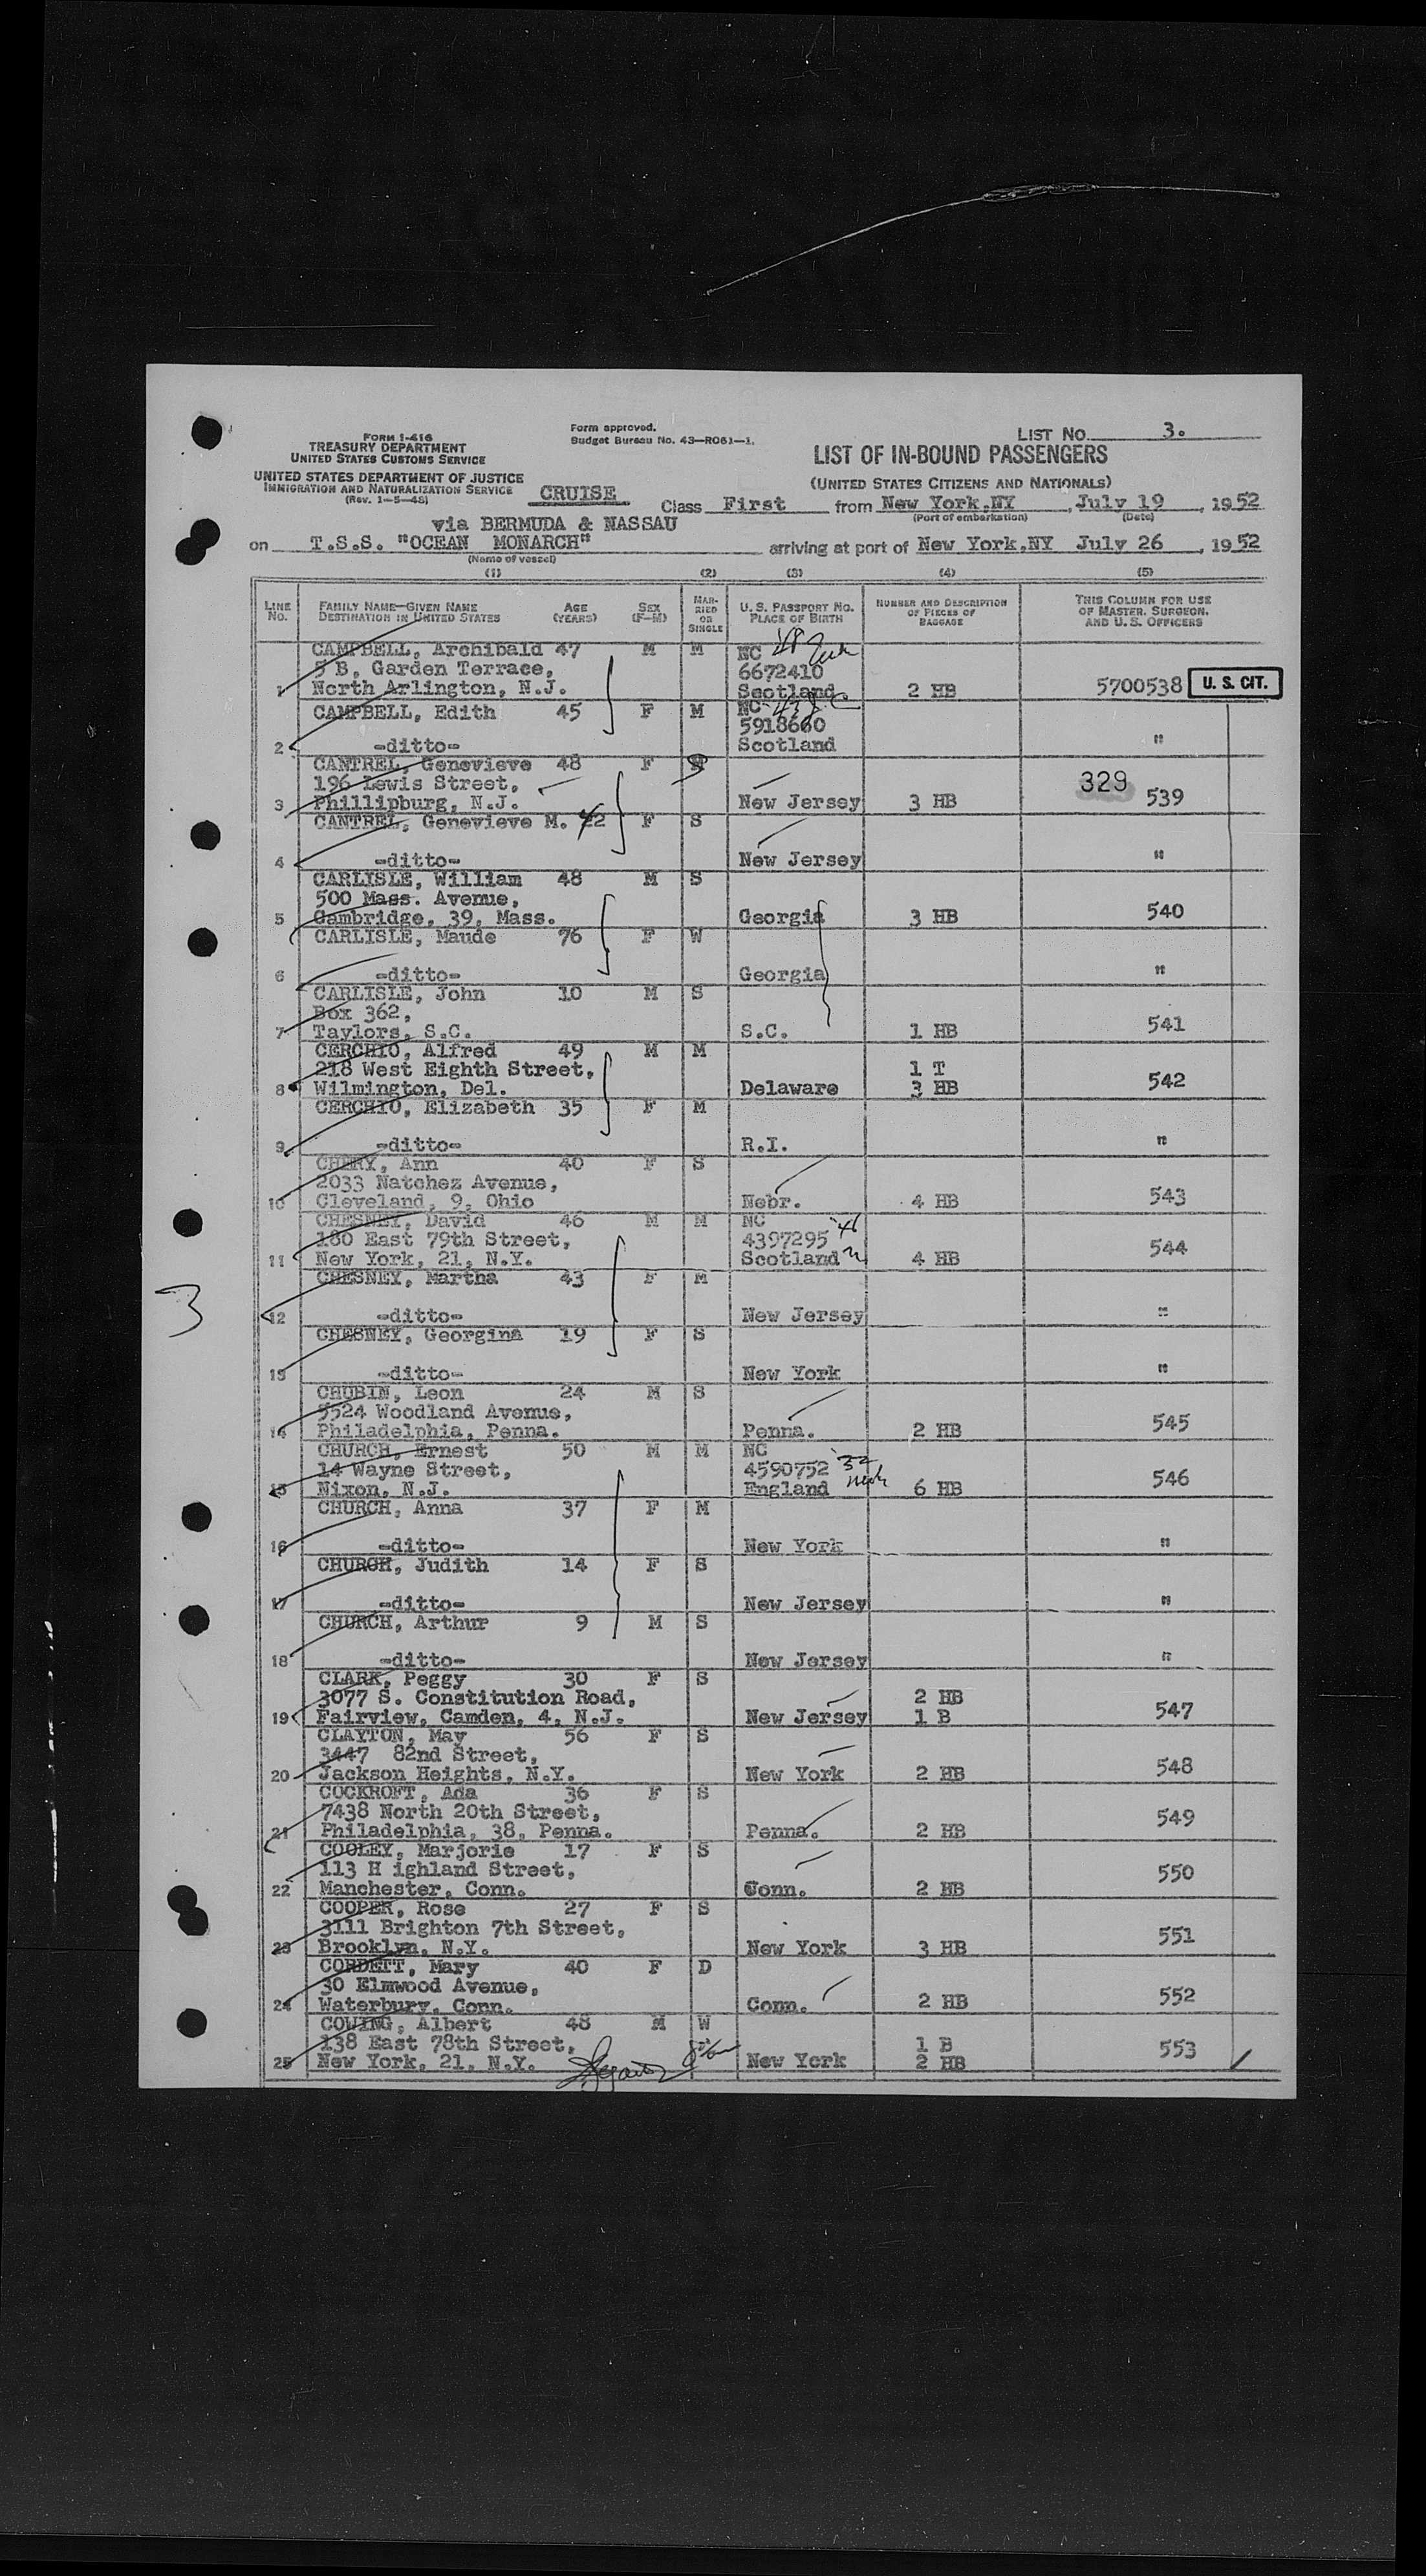 LIST NO. 3.
FORM I-416
TREASURY DEPARTMENT
UNITED STATES CUSTOMS SERVICE
UNITED STATES DEPARTMENT OF JUSTICE
IMMIGRATION AND NATURALIZATION SERVICE
(Rev. 1-5-45)
Form approved.
Budget Bureau No. 43-R061-1.
LIST OF IN-BOUND PASSENGERS
(UNITED STATES CITIZENS AND NATIONALS)
CRUISE Class First from New York,NY , July 19 , 1952
(Port of embarkation) (Date)
via BERMUDA & NASSAU
on T.S.S. "OCEAN MONARCH" arriving at port of New York,NY July 26 , 1952
(Name of vessel)
(1) (2) (3) (4) (5)
LINE No. FAMILY NAME—GIVEN NAME DESTINATION IN UNITED STATES AGE (YEARS) SEX (F-M) MARRIED OR SINGLE U. S. PASSPORT NO. PLACE OF BIRTH NUMBER AND DESCRIPTION OF PIECES OF BAGGAGE THIS COLUMN FOR USE OF MASTER, SURGEON, AND U. S. OFFICERS
CAMPBELL, Archibald 47 M M NC
5 B, Garden Terrace, 6672410
1 North Arlington, N.J. Scotland 2 HB 5700538 U. S. CIT.
CAMPBELL, Edith 45 F M NC
5918660
2 -ditto- Scotland "
CANTREL, Genevieve 48 F
196 Lewis Street, 329
3 Phillipburg, N.J. New Jersey 3 HB 539
CANTREL, Genevieve M. 22 F S
4 -ditto- New Jersey "
CARLISLE, William 48 M S
500 Mass. Avenue,
5 Cambridge, 39, Mass. Georgia 3 HB 540
CARLISLE, Maude 76 F W
6 -ditto- Georgia "
CARLISLE, John 10 M S
Box 362,
7 Taylors, S.C. S.C. 1 HB 541
CERCHIO, Alfred 49 M M
218 West Eighth Street, 1 T
8 Wilmington, Del. Delaware 3 HB 542
CERCHIO, Elizabeth 35 F M
9 -ditto- R.I. "
CHERY, Ann 40 F S
2033 Natchez Avenue,
10 Cleveland, 9, Ohio Nebr. 4 HB 543
CHESNEY, David 46 M M NC
180 East 79th Street, 4397295 '46
11 New York, 21, N.Y. Scotland 4 HB 544
CHESNEY, Martha 43 F M
12 -ditto- New Jersey "
3
CHESNEY, Georgina 19 F S
13 -ditto- New York "
CHUBIN, Leon 24 M S
5524 Woodland Avenue,
14 Philadelphia, Penna. Penna. 2 HB 545
CHURCH, Ernest 50 M M NC
14 Wayne Street, 4590752 '32
15 Nixon, N.J. England 6 HB 546
CHURCH, Anna 37 F M
16 -ditto- New York "
CHURCH, Judith 14 F S
17 -ditto- New Jersey "
CHURCH, Arthur 9 M S
18 -ditto- New Jersey "
CLARK, Peggy 30 F S
3077 S. Constitution Road, 2 HB
19 Fairview, Camden, 4, N.J. New Jersey 1 B 547
CLAYTON, May 56 F S
3447 82nd Street,
20 Jackson Heights, N.Y. New York 2 HB 548
COCKROFT, Ada 36 F S
7438 North 20th Street,
21 Philadelphia, 38, Penna. Penna. 2 HB 549
COOLEY, Marjorie 17 F S
113 H ighland Street,
22 Manchester, Conn. Conn. 2 HB 550
COOPER, Rose 27 F S
3111 Brighton 7th Street,
23 Brooklyn, N.Y. New York 3 HB 551
CORDETT, Mary 40 F D
30 Elmwood Avenue,
24 Waterbury, Conn. Conn. 2 HB 552
COWING, Albert 48 M W
138 East 78th Street, 1 B
25 New York, 21, N.Y. New York 2 HB 553